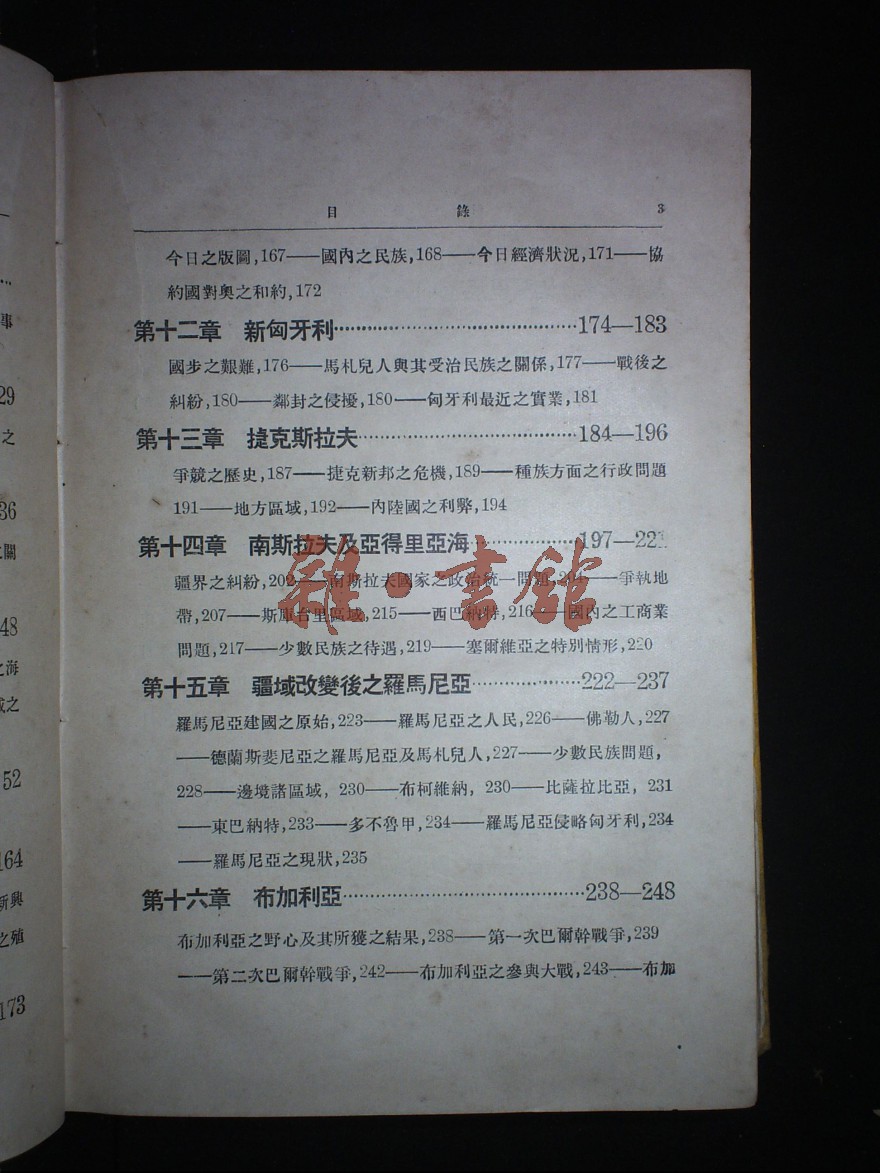 目 錄 3
今日之版圖,167——國內之民族,168——今日經濟狀況,171——協
約國對奧之和約,172
第十二章 新匈牙利……174—183
國步之艱難,176——馬札兒人與其受治民族之關係,177——戰後之
糾紛,180——鄰封之侵擾,180——匈牙利最近之實業,181
第十三章 捷克斯拉夫……184—196
爭競之歷史,187——捷克新邦之危機,189——種族方面之行政問題
191——地方區域,192——內陸國之利弊,194
第十四章 南斯拉夫及亞得里亞海……197—221
疆界之糾紛,202——南斯拉夫國家之政治統一問題,——爭執地
帶,207——斯庫台里區域,215——西巴納特,216——國內之工商業
問題,217——少數民族之待遇,219——塞爾維亞之特別情形,220
第十五章 疆域改變後之羅馬尼亞……222—237
羅馬尼亞建國之原始,223——羅馬尼亞之人民,226——佛勒人,227
——德蘭斯斐尼亞之羅馬尼亞及馬札兒人,227——少數民族問題,
228——邊境諸區域,230——布柯維納,230——比薩拉比亞,231
——東巴納特,233——多不魯甲,234——羅馬尼亞侵略匈牙利,234
——羅馬尼亞之現狀,235
第十六章 布加利亞……238—248
布加利亞之野心及其所獲之結果,238——第一次巴爾幹戰爭,239
——第二次巴爾幹戰爭,242——布加利亞之參與大戰,243——布加
雜·書館
事
29
之
36
關
48
之海
之
52
164
新興
之殖
173